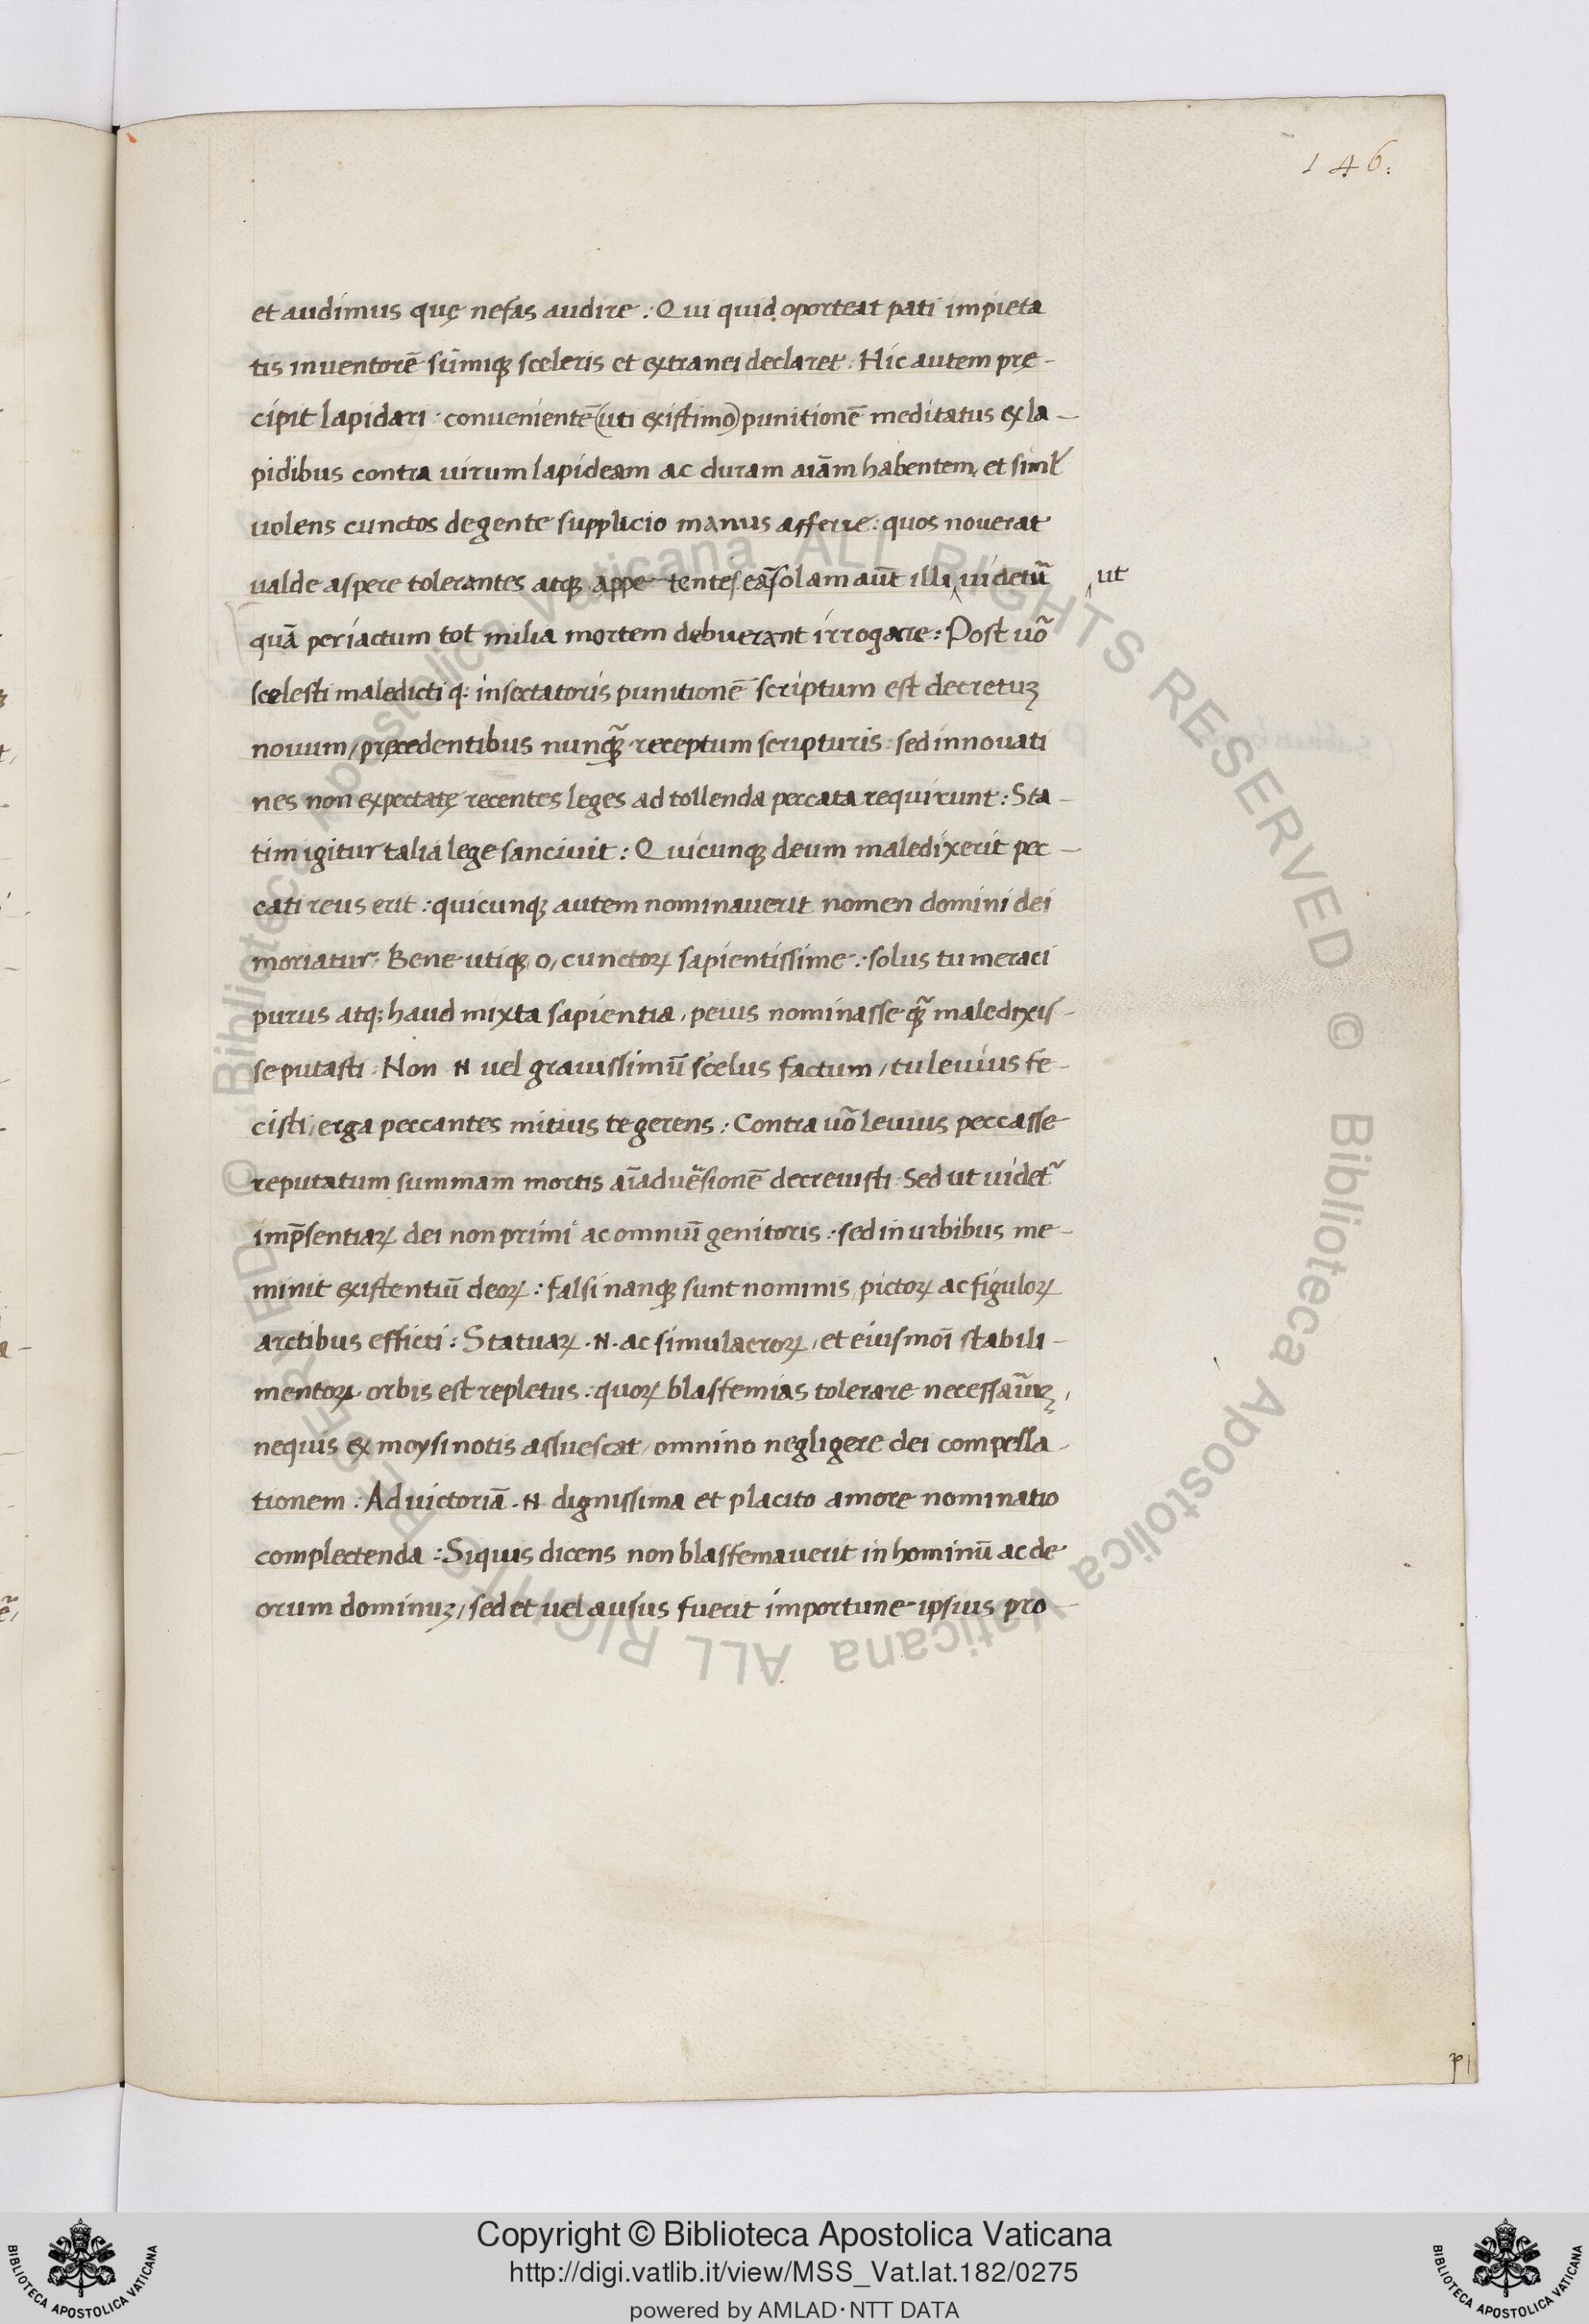 146.
et audimus quę nefas audire : Qui quid oporteat pati impieta
tis inuentorē sūmiqꝫ sceleris et extranei declaret : Hic autem prę-
cipit lapidari : conuenientē (uti existimo) punitionē meditatus ex la-
pidibus contra uirum lapideam ac duram aīam habentem, et siml̕
uolens cunctos de gente supplicio manus afferre : quos nouerat
ualde aspere tolerantes atqꝫ appe tentes. eā solam aūt illi ‸ uidetū
‸ ut
quā per iactum tot milia mortem debuerant irrogare : Post uō
scelesti maledicti q: insectatoris punitionē scriptum est decretuꝫ
nouum / pręcedentibus nunqꝫ̃ receptum scripturis : sed innouati
nes non expectatę recentes leges ad tollenda peccata requirunt : Sta-
tim igitur talia lege sanciuit : Quicunqꝫ deum maledixerit pec-
cati reus erit : quicunqꝫ autem nominauerit nomen domini dei
moriatur : Bene utiqꝫ o, cunctoꝝ sapientissime : solus tu meraci
purus atqꝫ haud mixta sapientia, peius nominasse qꝫ̃ maledixis-
se putasti : Non .N. uel grauissimū scelus factum, tu leuius fe-
cisti, erga peccantes mitius te gerens : Contra uō leuius peccasse
reputatum summam mortis aīaduēsionē decreuisti : Sed ut uidet᷑
imp̄sentiaꝝ dei non primi ac omniū genitoris : sed in urbibus me-
minit existentiū deoꝝ : falsi nanqꝫ sunt nominis, pictoꝝ ac figuloꝝ
arctibus efficti : Statuaꝝ .N. ac simulacroꝝ, et eiusmoī stabili-
mentoꝝ orbis est repletus : quoꝝ blasfemias tolerare necessaūꝫ,
nequis ex moysi notis assuescat, omnino negligere dei compella-
tionem : Ad uictoriā .N. dignissima et placito amore nominatio
complectenda : Siquis dicens non blasfemauerit in hominū ac de
orum dominuꝫ, sed et uel ausus fuerit importune ipsius pro-
© Biblioteca Apostolica Vaticana ALL RIGHTS RESERVED © Biblioteca Apostolica Vaticana ALL RIGHTS RESERVED
Copyright © Biblioteca Apostolica Vaticana
http://digi.vatlib.it/view/MSS_Vat.lat.182/0275
powered by AMLAD·NTT DATA
BIBLIOTECA APOSTOLICA VATICANA
BIBLIOTECA APOSTOLICA VATICANA